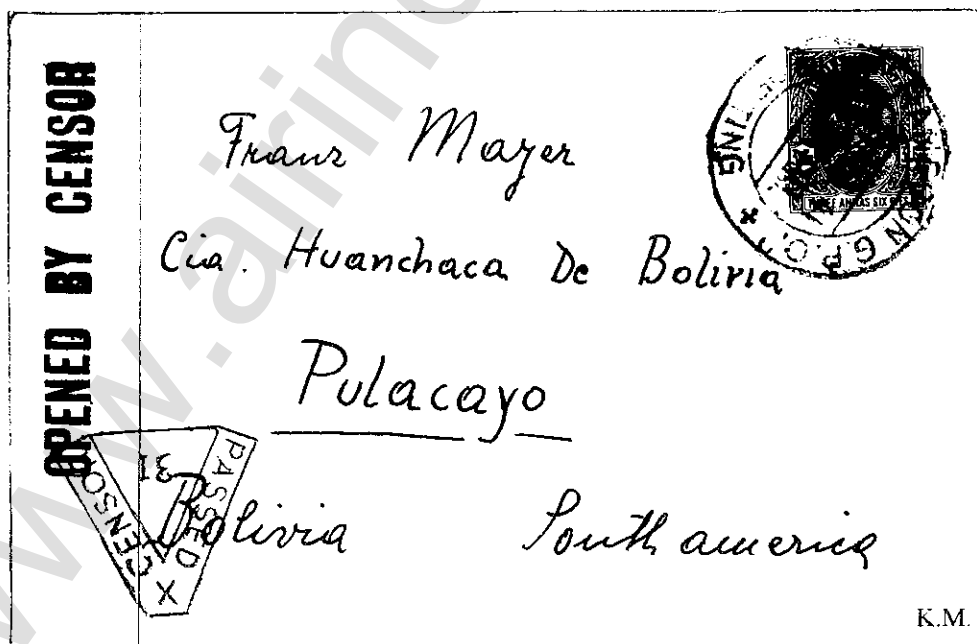 OPENED BY CENSOR
Franz Mayer
Cia. Huanchaca De Bolivia
Pulacayo
Bolivia South america
THREE ANNAS SIX PIES
G.P.O.
PASSED
CENSOR
31
X
K.M.
www.airin